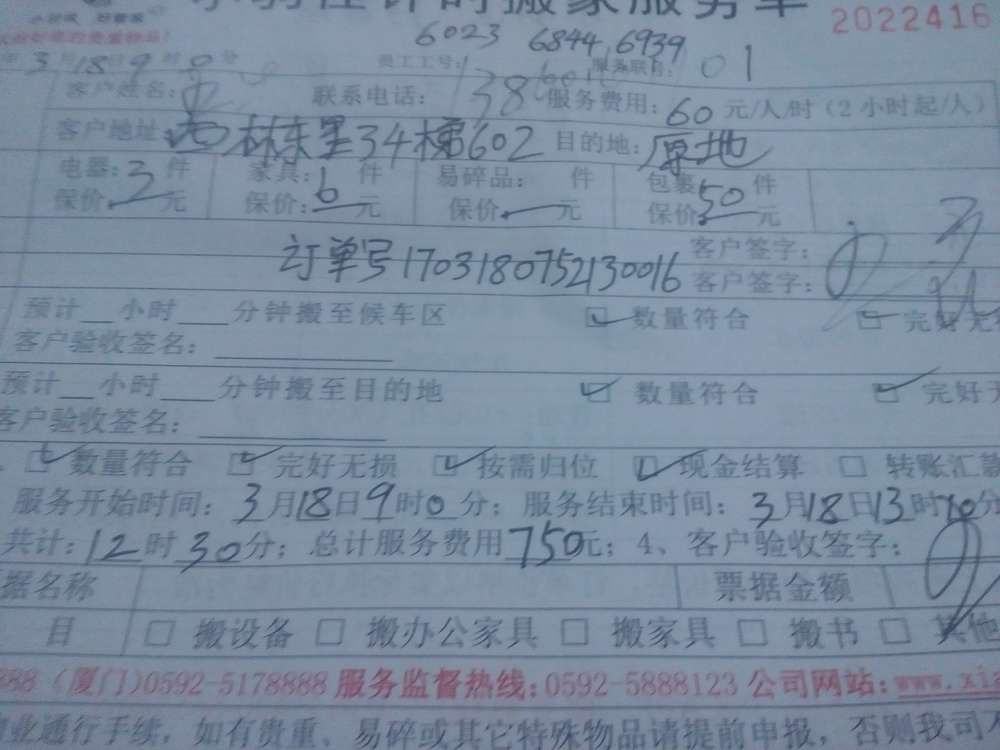 计时搬家服务单
2022416
6023 6844 6939
年3月18日9时0分 员工工号: 服务联有: 01
客户姓名: 联系电话: 138 服务费用: 60元/人/时(2小时起/人)
客户地址: 西林东里34梯602 目的地: 原地
电器: 3件 家具: 6件 易碎品: 件 包裹 50件
保价: 元 保价: 元 保价: 元 保价: 元
客户签字:
订单号1703180752130016 客户签字:
预计__小时___分钟搬至候车区 ☑ 数量符合 ☑ 完好无
客户验收签名:
预计__小时___分钟搬至目的地 ☑ 数量符合 ☑ 完好无
客户验收签名:
☑ 数量符合 ☑ 完好无损 ☑ 按需归位 ☑ 现金结算 □ 转账汇款
服务开始时间: 3月18日9时0分; 服务结束时间: 3月18日13时10分
共计: 12时30分; 总计服务费用750元; 4、客户验收签字:
据名称 票据金额
目 □ 搬设备 □ 搬办公家具 □ 搬家具 □ 搬书 □ 其他
888 (厦门)0592-5178888 服务监督热线:0592-5888123 公司网站:www.xi
业通行手续, 如有贵重、易碎或其它特殊物品请提前申报, 否则我司不